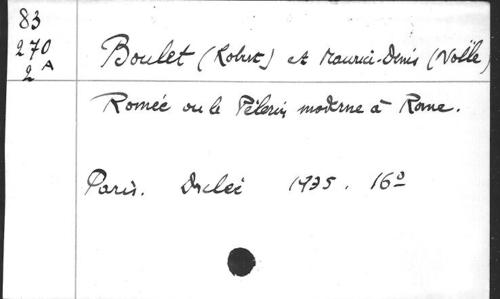 83
270
2 A
Boulet (Robert) et Maurice-Denis (Noële)
Romée ou le Pèlerin moderne à Rome.
Paris. Desclée 1935. 16º